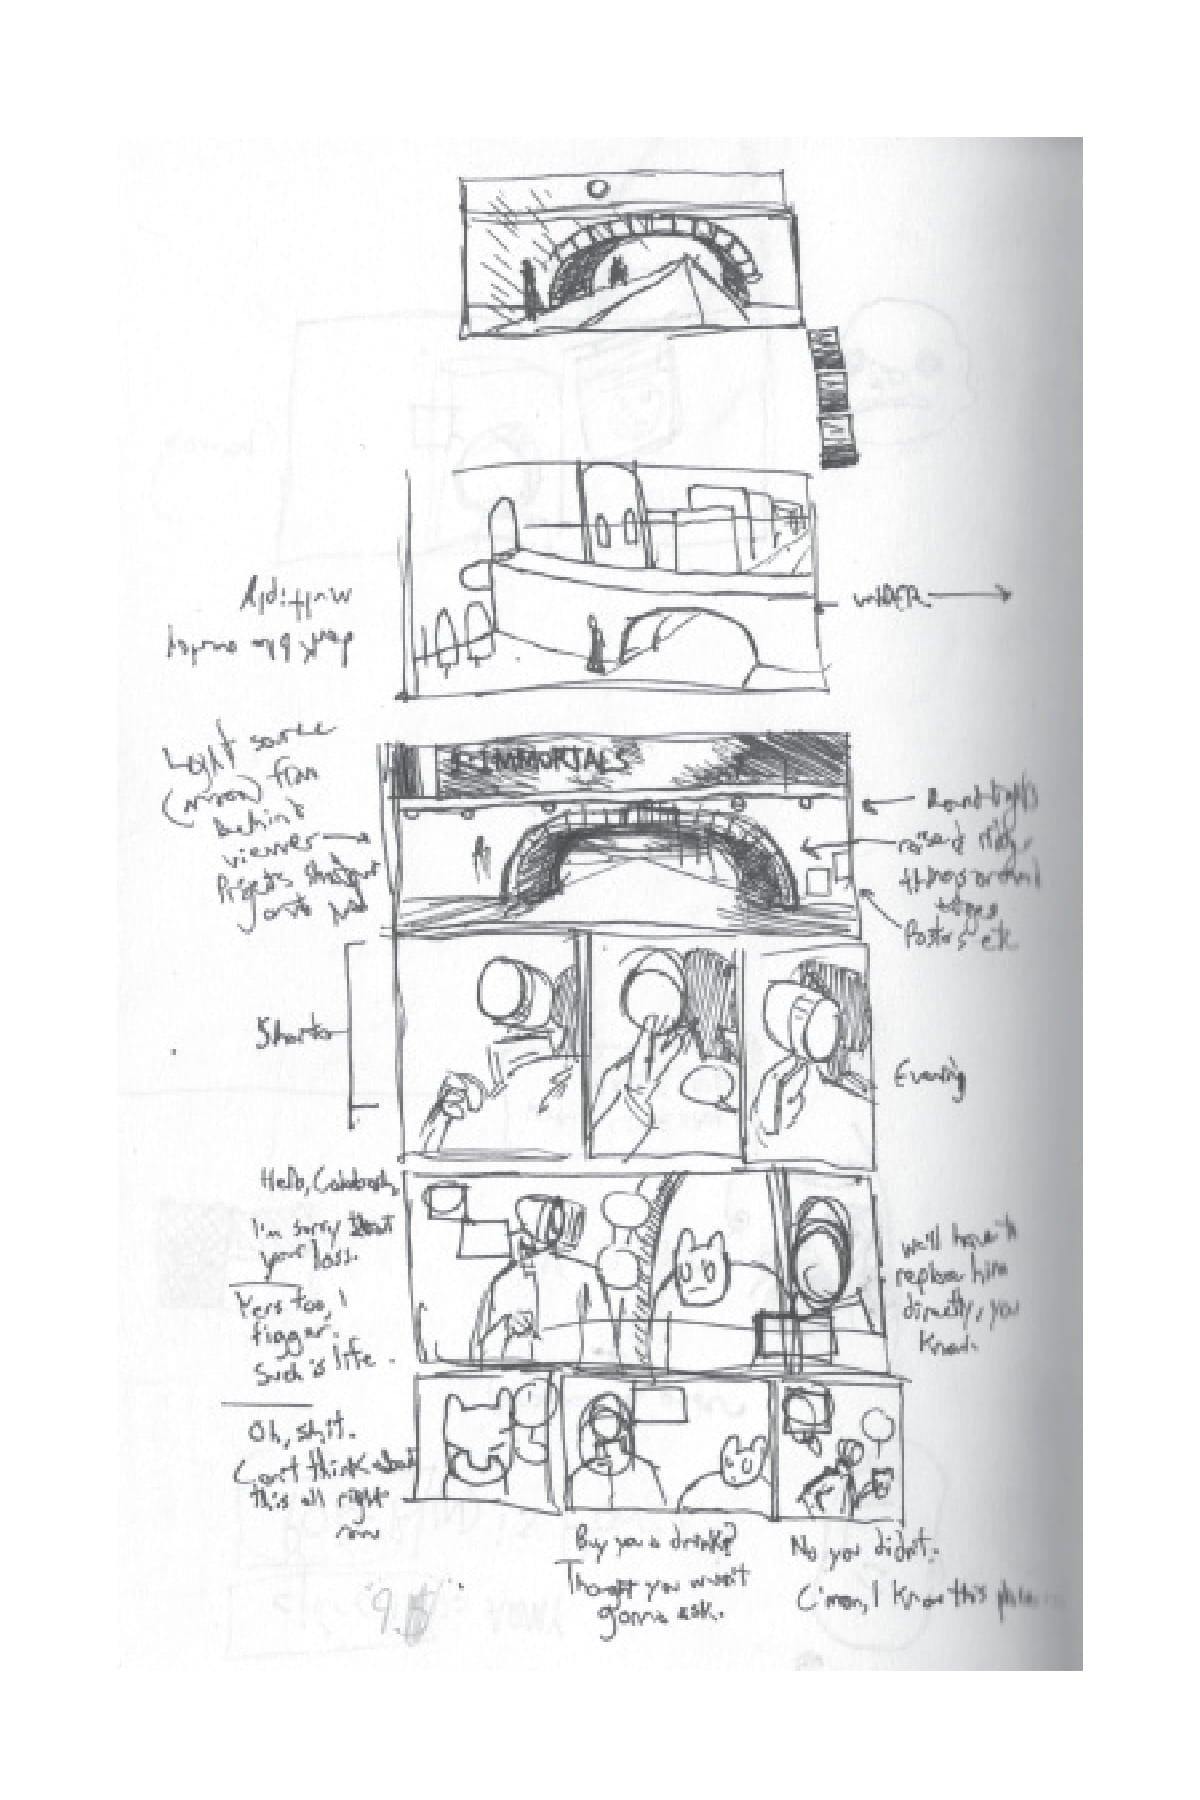 Multiply
dark blue
WIDER
Light source
from
behind
viewer
IMMORTALS
Round lights
raised
things around
edges
Posters etc
Shorter
Evening
Hello, Calabash,
I'm sorry about
your loss.
Yers too, I
figger.
Such is life.
we'll have to
replace him
directly, you
know.
Oh, shit.
Can't think about
this all right
now
Buy you a drink?
Thought you wasn't
gonna ask.
No you didn't.
C'mon, I know this